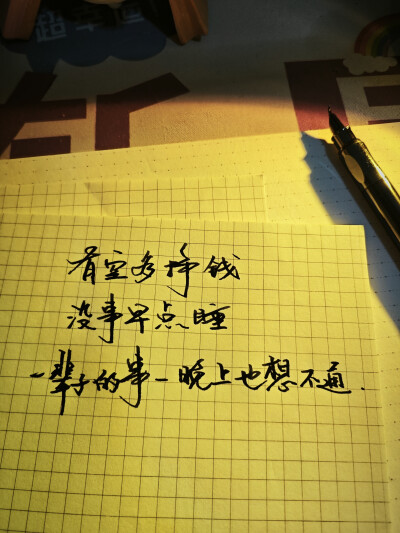 有空多挣钱
没事早点睡
一辈子的事一晚上也想不通.